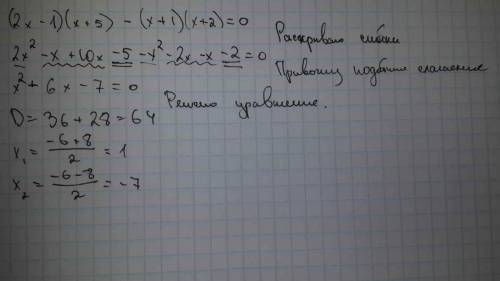 (2x - 1)(x + 5) - (x + 1)(x + 2) = 0
Раскрываю скобки
2x² - x + 10x - 5 - x² - 2x - x - 2 = 0
Привожу подобные слагаемые
x² + 6x - 7 = 0
Решаю уравнение.
D = 36 + 28 = 64
x₁ = (-6 + 8)/2 = 1
x₂ = (-6 - 8)/2 = -7